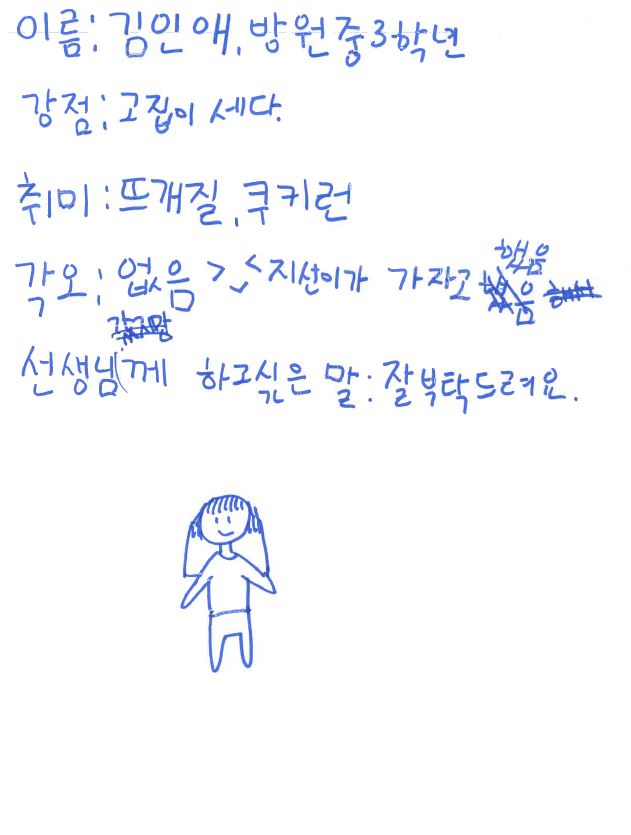 이름: 김인애, 방원중3학년
강점: 고집이 세다.
취미: 뜨개질, 쿠키런
각오: 없음 >、< 지선이가 가자고 했음
선생님께 하고싶은 말: 잘부탁드려요.